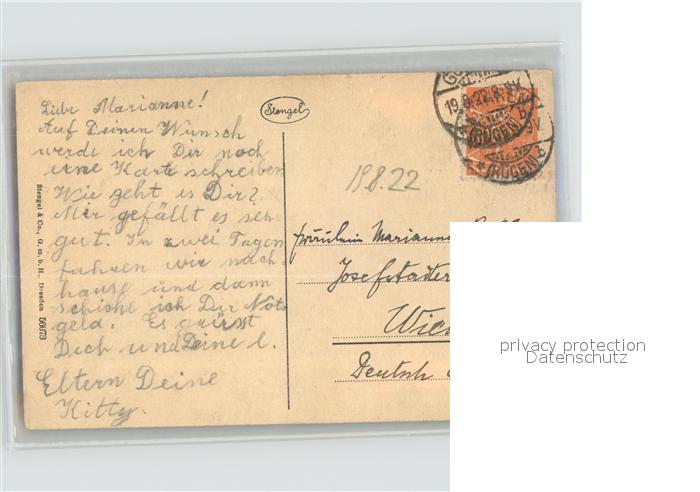 Liebe Marianne!
Auf Deinen Wunsch
werde ich Dir noch
eine Karte schreiben
Wie geht es Dir?
Mir gefällt es sehr
gut. In zwei Tagen
fahren wir nach-
hause und dann
schicke ich Dir Not-
geld. Es grüsst
Dich und Deine l.
Eltern Deine
Kitty.
Stengel
Stengel & Co., G. m. b. H., Dresden 56073
19.8.22
19.8.22.8-9V
(RÜGEN) b
* (RÜGEN) b
Fräulein Marianne
Josefstädter
Wien
Deutsch
privacy protection
Datenschutz